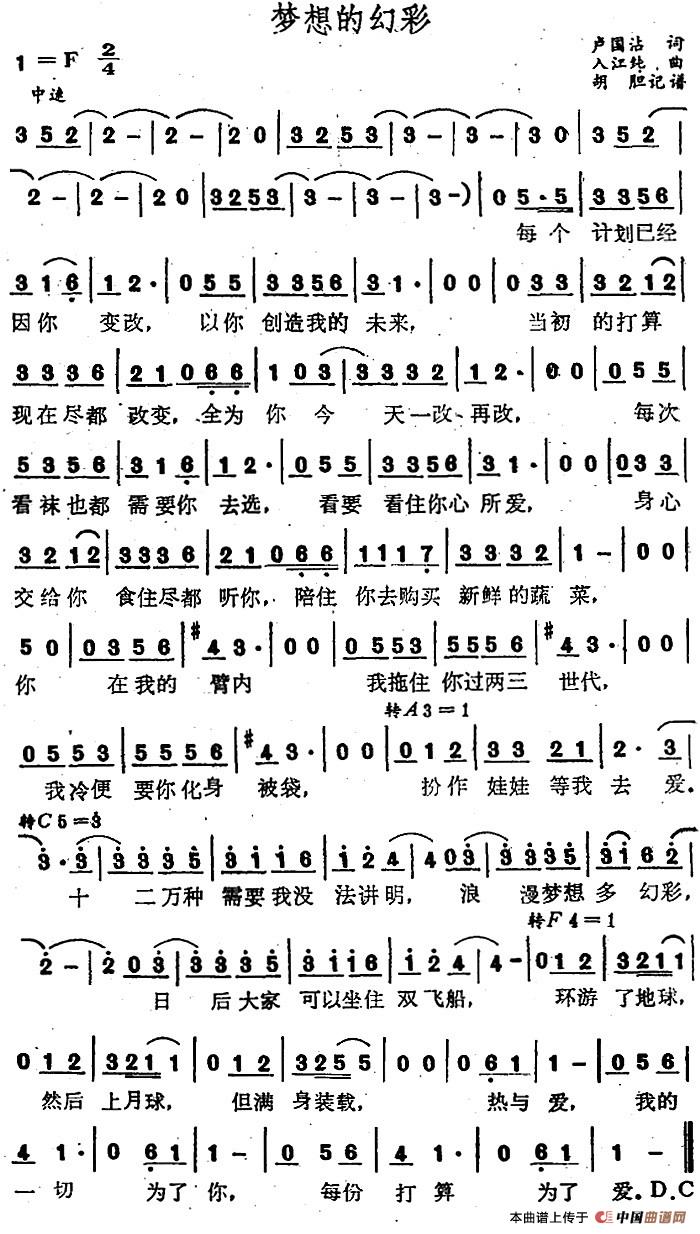 梦想的幻彩
1=F 2/4
卢国沾 词
入江纯 曲
胡 胆记谱
中速
3 5 2 | 2 - | 2 - | 2 0 | 3 2 5 3 | 3 - | 3 - | 3 0 | 3 5 2 |
2 - | 2 - | 2 0 | 3 2 5 3 | 3 - | 3 - | 3 - ) | 0 5 · 5 | 3 3 5 6 |
每个 计划已经
3 1 6 | 1 2 · | 0 5 5 | 3 3 5 6 | 3 1 · | 0 0 | 0 3 3 | 3 2 1 2 |
因你 变改, 以你 创造我的 未来, 当初 的打算
3 3 3 6 | 2 1 0 6 6 | 1 0 3 | 3 3 3 2 | 1 2 · | 0 0 | 0 5 5 |
现在尽都 改变, 全为 你 今 天一改再改, 每次
5 3 5 6 | 3 1 6 | 1 2 · | 0 5 5 | 3 3 5 6 | 3 1 · | 0 0 | 0 3 3 |
看袜也都 需要你 去选, 看要 看住你心 所爱, 身心
3 2 1 2 | 3 3 3 6 | 2 1 0 6 6 | 1 1 1 7 | 3 3 3 2 | 1 - | 0 0 |
交给你 食住尽都 听你, 陪住 你去购买 新鲜的蔬 菜,
5 0 | 0 3 5 6 | #4 3 · | 0 0 | 0 5 5 3 | 5 5 5 6 | #4 3 · | 0 0 |
你 在我的 臂内 我拖住 你过两三 世代,
转A 3=1
0 5 5 3 | 5 5 5 6 | #4 3 · | 0 0 | 0 1 2 | 3 3 2 1 | 2 · 3 |
我冷便 要你化身 被袋, 扮作 娃娃 等我 去 爱。
转C 5=3
3 · 3 | 3 3 3 5 | 3 1 1 6 | 1 2 4 | 4 0 3 | 3 3 3 5 | 3 1 6 2 |
十 二万种 需要我没 法讲明, 浪 漫梦想多 幻彩,
转F 4=1
2 - | 2 0 3 | 3 3 3 5 | 3 1 1 6 | 1 2 4 | 4 - | 0 1 2 | 3 2 1 1 |
日 后大家 可以坐住 双飞船, 环游 了地球,
0 1 2 | 3 2 1 1 | 0 1 2 | 3 2 5 5 | 0 0 | 0 6 1 | 1 - | 0 5 6 |
然后 上月球, 但满 身装载, 热与 爱, 我的
4 1 · | 0 6 1 | 1 - | 0 5 6 | 4 1 · | 0 6 1 | 1 - ‖
一切 为了 你, 每份 打算 为了 爱。D.C
本曲谱上传于 中国曲谱网